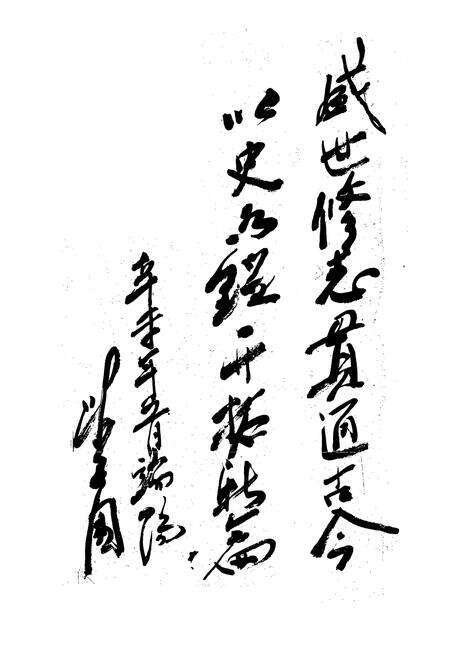 盛世修志貫通古今
以史为鑑开拓新篇
辛未年五月端阳